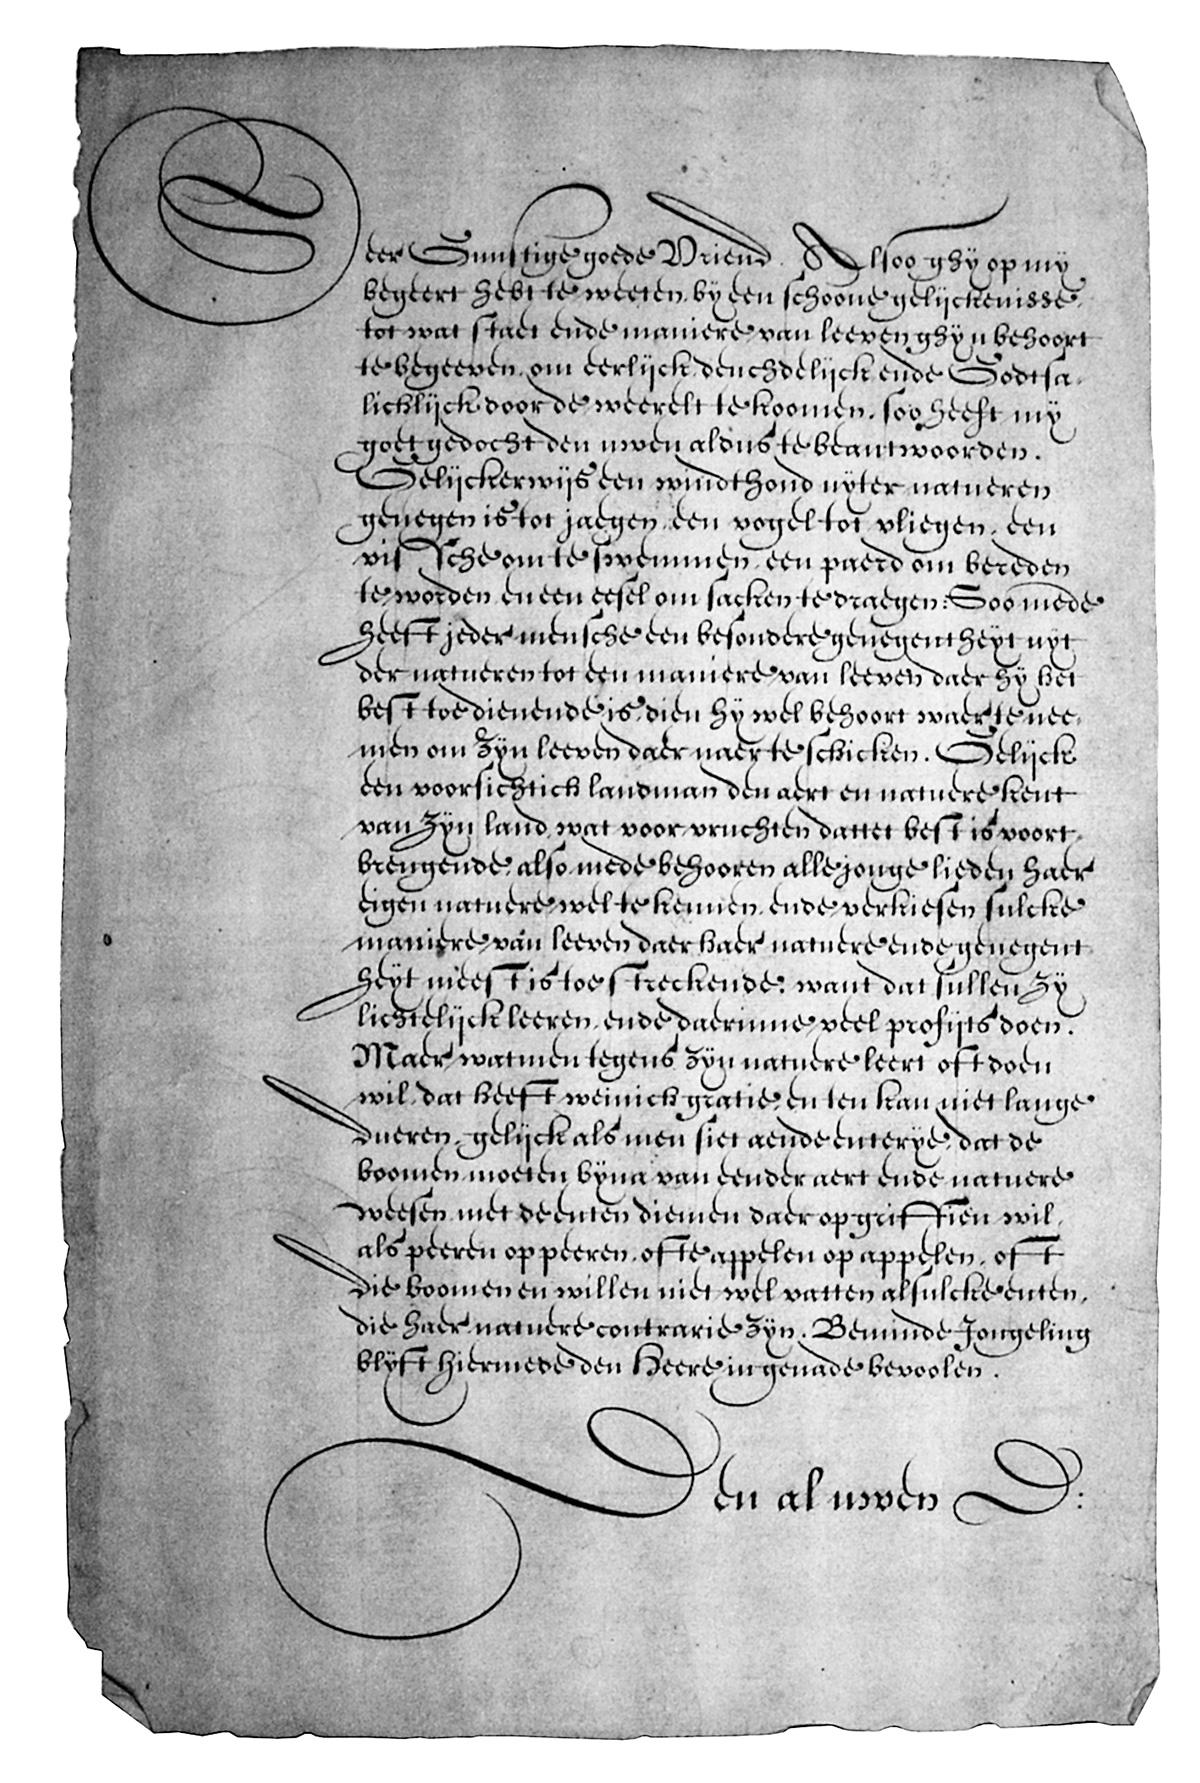 Seer Gunstige goede Vriend. Alsoo ghy op my
begeert hebt te weeten by een schoone gelijckenisse
tot wat staet ende maniere van leeven ghy u behoort
te begeeven, om eerlijck, deuchdelijck ende Godtsa-
licklijck door de weerelt te koomen, soo heeft my
goet gedocht den uwen aldus te beantwoorden.
Gelijckerwijs een windthond uyter natueren
genegen is tot jaegen, een vogel tot vliegen, een
vissche om te swemmen, een paerd om bereden
te worden en een eesel om sacken te draegen: Soo mede
heeft jeder mensche een besondere genegentheyt uyt
der natueren tot een maniere van leeven daer hy het
best toe dienende is, dien hy wel behoort waer te nee-
men om zyn leeven daer naer te schicken. Gelijck
een voorsichtich landman den aert en natuere kent
van zyn land, wat voor vruchten dattet best is voort-
brengende, also mede behooren alle jonge lieden haer
eigen natuere wel te kennen, ende verkiesen sulcke
maniere van leeven daer haer natuere ende genegent
heyt meest is toe streckende: want dat sullen zy
lichtelijck leeren, ende daerinne veel profijts doen.
Maer watmen tegens zyn natuere leert oft doen
wil, dat heeft weinich gratie, en ten kan niet lange
dueren, gelijck als men siet aende enterye, dat de
boomen moeten byna van eender aert ende natuere
weesen met de enten diemen daer op griffien wil,
als peeren op peeren, ofte appelen op appelen, oft
die boomen en willen niet wel vatten alsulcke enten,
die haer natuere contrarie zyn. Beminde Jongeling
blyft hiermede den Heere in genade bevoolen.
Den al uwen D: